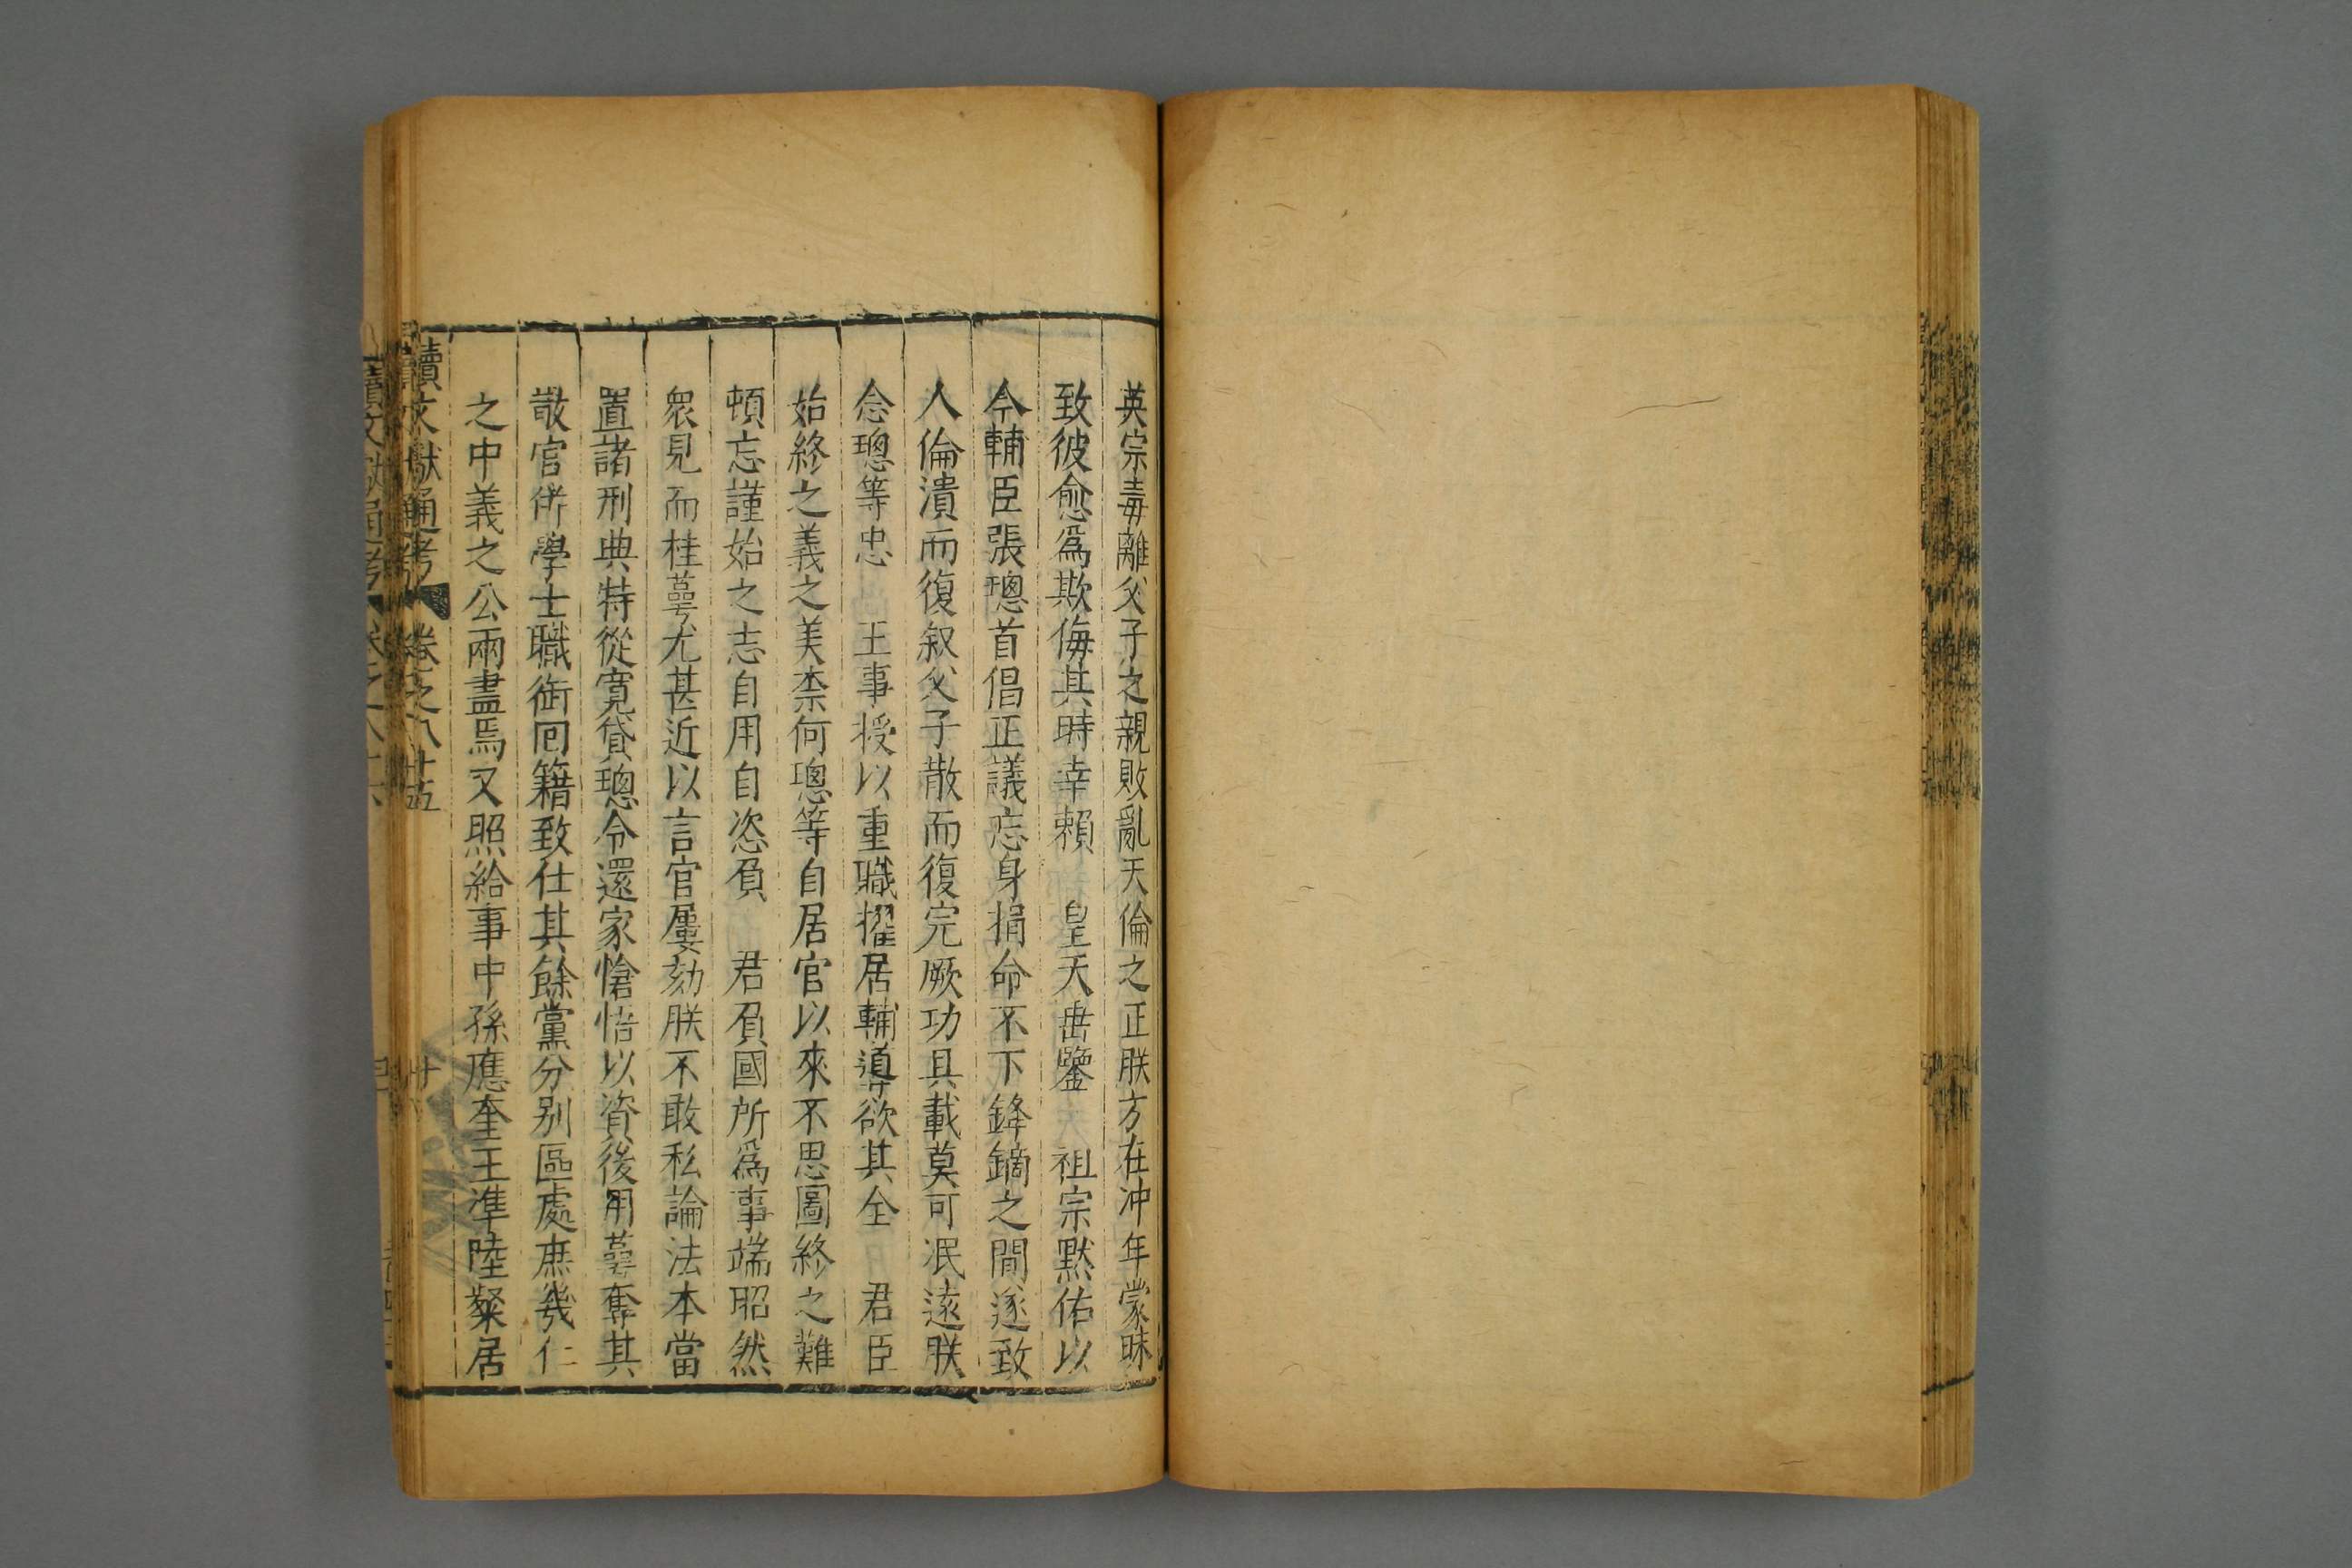 英宗毒離父子之親敗亂天倫之正朕方在沖年蒙昧
致彼愈爲欺侮其時幸賴　皇天垂鑒　祖宗默佑以
今輔臣張璁首倡正議忘身捐命不下鋒鏑之間遂致
人倫潰而復叙父子散而復完厥功具載莫可泯遠朕
念璁等忠　王事授以重職擢居輔導欲其全　君臣
始終之義之美柰何璁等自居官以來不思圖終之難
頓忘謹始之志自用自恣負　君負國所爲事端昭然
衆見而桂萼尤甚近以言官屢劾朕不敢私論法本當
置諸刑典特從寬貸璁令還家愴悟以資後用萼奪其
散官併學士職銜囘籍致仕其餘黨分别區處庶幾仁
之中義之公兩盡焉又照給事中孫應奎王準陸粲居
續文獻通考　卷之八十五